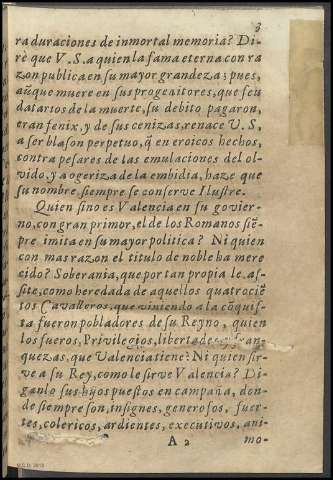 3
ra duraciones de inmortal memoria? Di-
rè que V.S. a quien la fama eterna con ra
zon publica en su mayor grandeza; pues,
aũque muere en sus progenitores, que feu
datartos de la muerte, su debito pagaron,
eran fenix, y de sus cenizas, renace V.S,
a ser blason perpetuo, q̃ en eroicos hechos,
contra pesares de las emulaciones del ol-
vido, y a ogeriza de la embidia, haze que
su nombre siempre se conserve Ilustre.
Quien sino es Valencia en su govier-
no, con gran primor, el de los Romanos siẽ-
pre imita en su mayor politica? Ni quien
con mas razon el titulo de noble ha mere
cido? Soberania, que por tan propia le as-
siste, como heredada de aquellos quatrociẽ
tos Cavalleros, que viniendo a la cõquis-
ta fueron pobladores de su Reyno, quien
los fueros, Privilegios, libertades, y fran-
quezas, que Valencia tiene? Ni quien sir-
ve a su Rey, como le sirve Valencia? Di-
ganlo sus hijos puestos en campaña, don-
de siempre son, insignes, generosos, fuer-
tes, colericos, ardientes, executivos, ani-
A 2 mo-